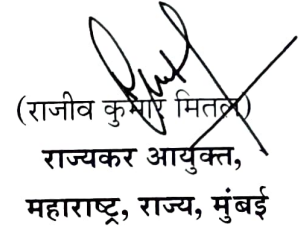 (राजीव कुमार मितल)
राज्यकर आयुक्त,
महाराष्ट्र, राज्य, मुंबई